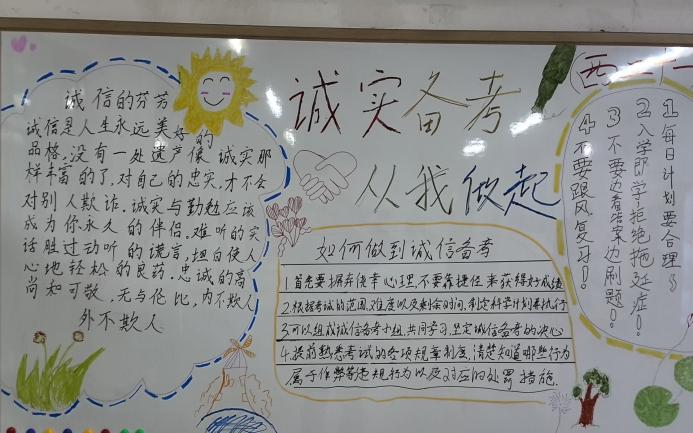 诚实备考
从我做起
诚信的芬芳
诚信是人生永远美好的
品格,没有一处遗产像诚实那
样丰富的了,对自己的忠实,才不会
对别人欺诈.诚实与勤勉应该
成为你永久的伴侣.难听的实
话胜过动听的谎言,坦白使人
心地轻松的良药.忠诚的高
尚和可敬,无与伦比,内不欺人
外不欺人
如何做到诚信备考
1.首先要摒弃侥幸心理,不要靠捷径来获得好成绩
2.根据考试的范围,难度以及剩余时间,制定科学计划并执行
3.可以组成诚信备考小组,共同学习,坚定诚信备考的决心
4.提前熟悉考试的各项规章制度,清楚知道哪些行为
属于作弊等违规行为以及对应的处罚措施.
1每日计划要合理!
2入学即学拒绝拖延症!
3不要边看答案边刷题!
4不要跟风复习!